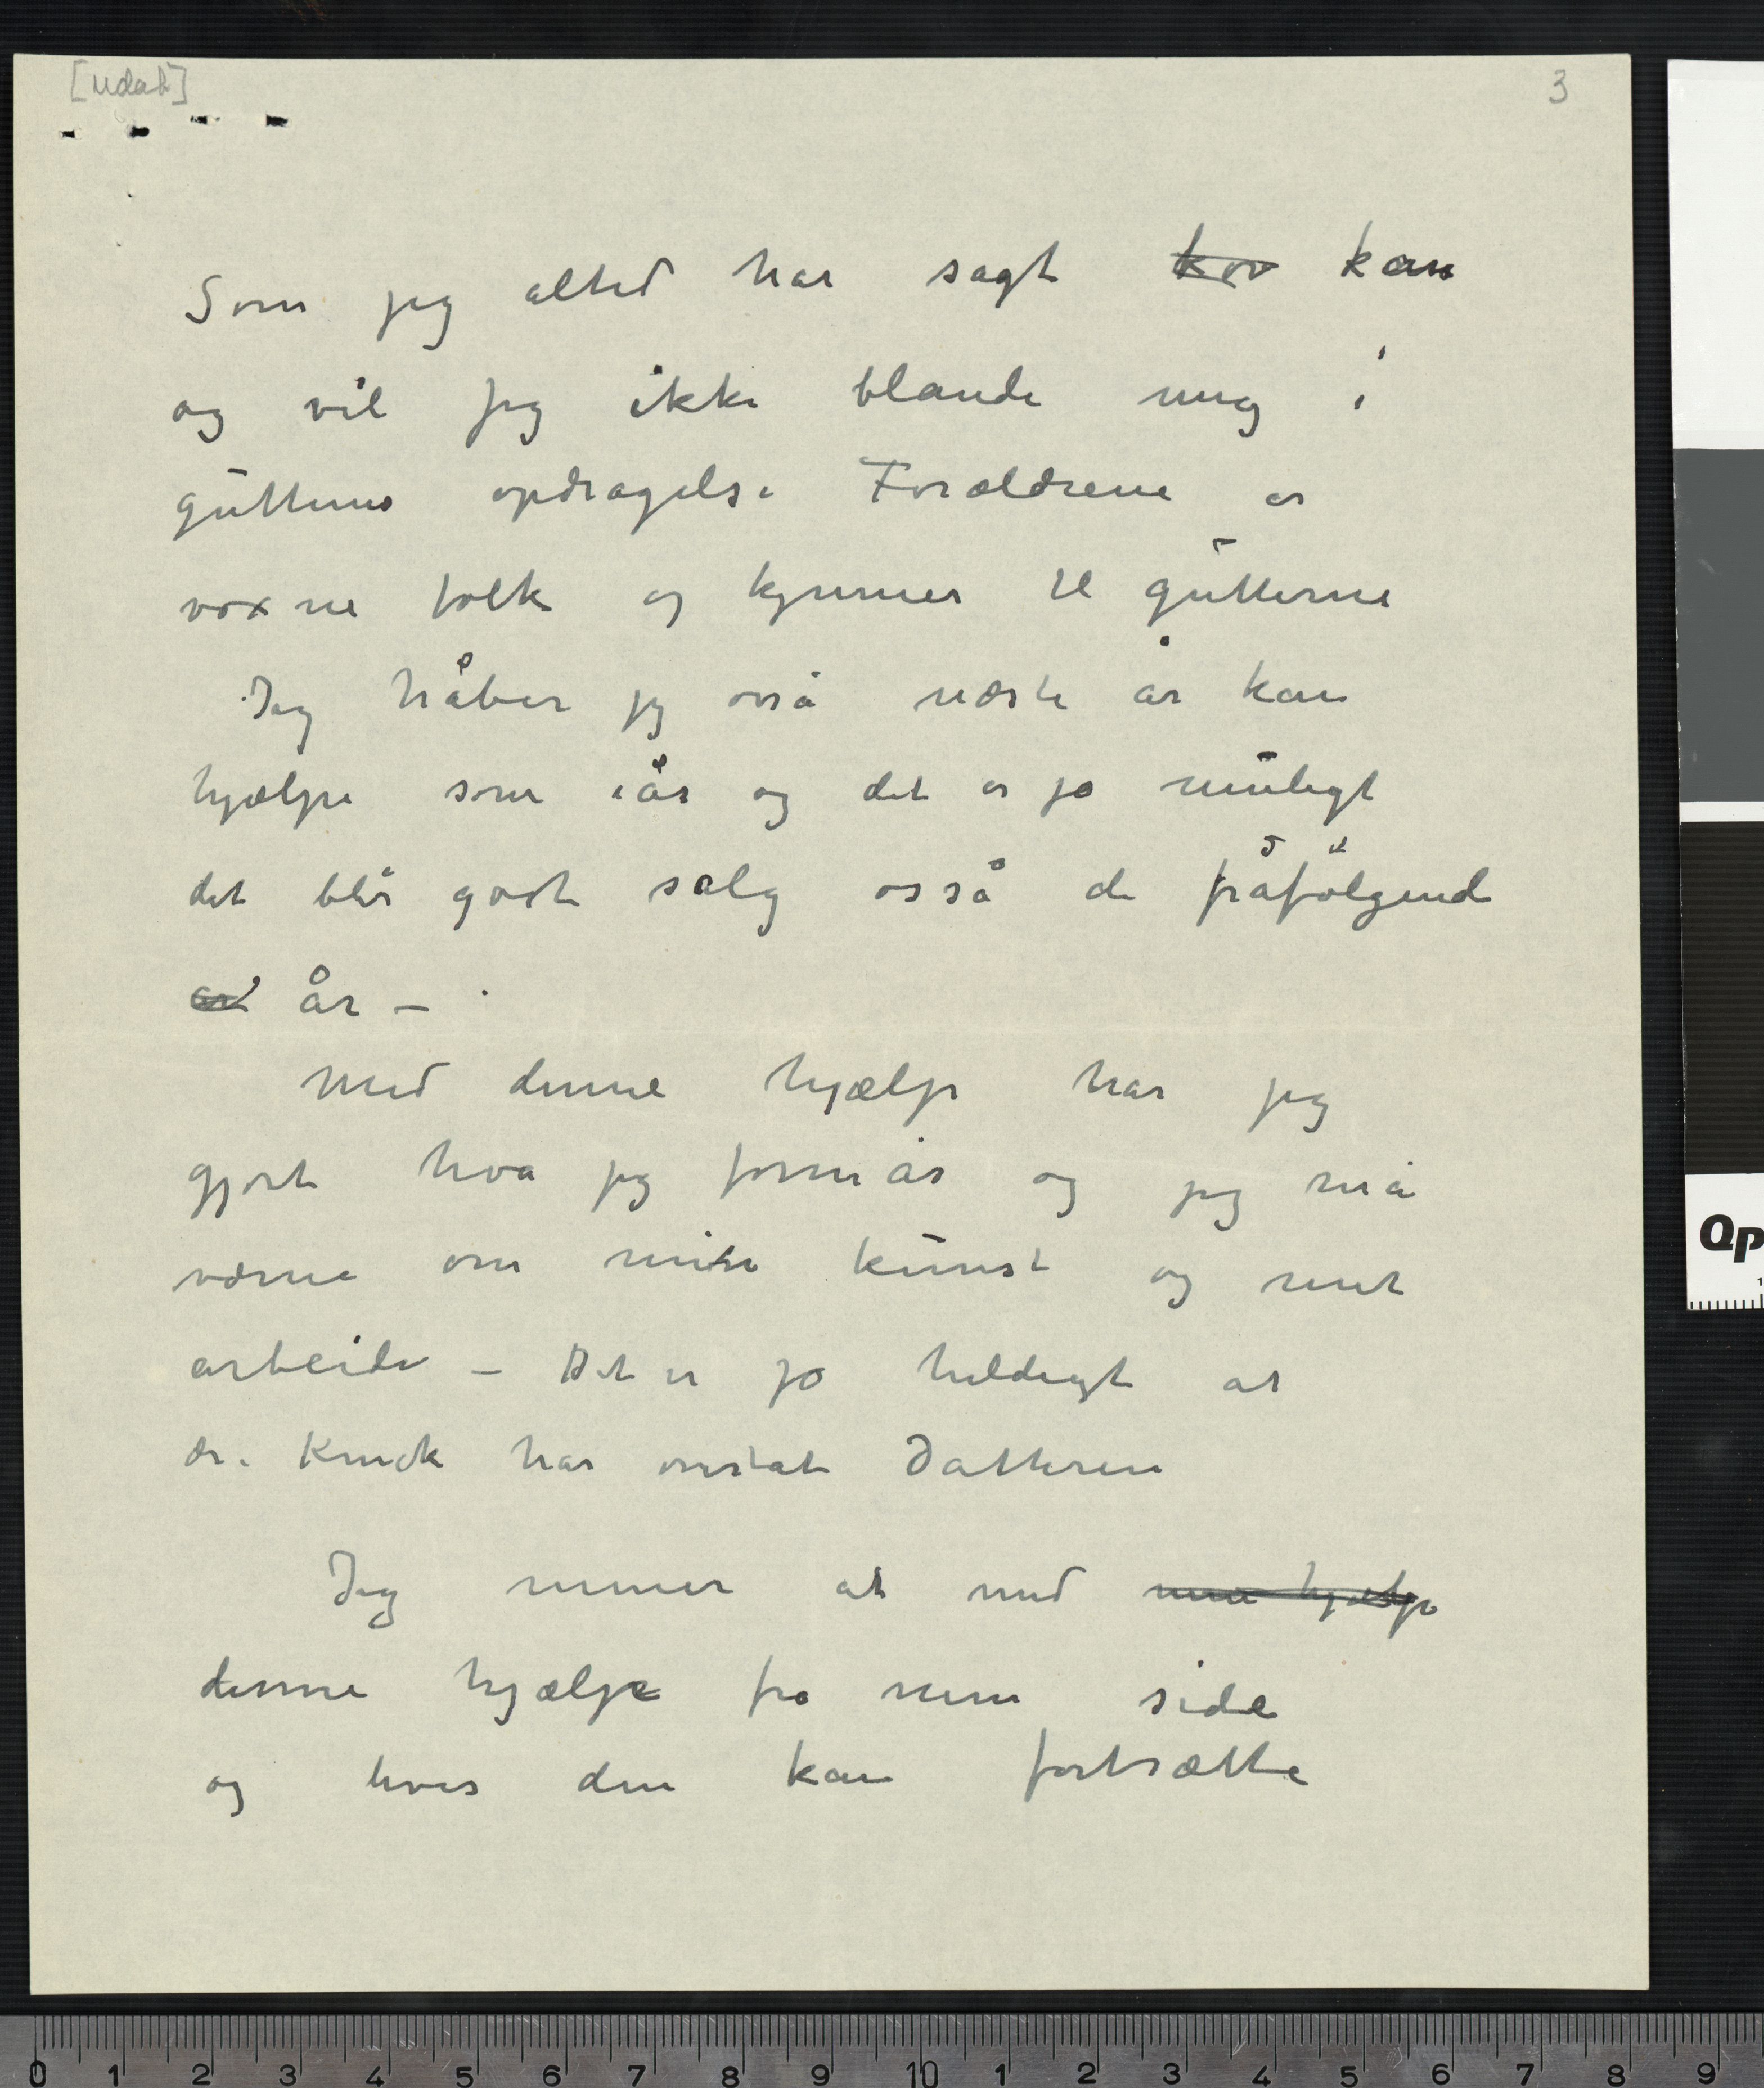 [udat]
3
Som jeg altid har sagt kor kan
og vil jeg ikke blande mig i
gutternes opdragelse Forældrene er
voxne folk og kjenner til gutterne
Jeg håber jeg osså næste år kan
hjælpe som iår og det er jo muligt
det blir godt salg osså de påfølgende
år år –
Med denne hjælp har jeg
gjort hva jeg formår og jeg må
værne om min kunst og mit
arbeide – Det er jo heldigt at
dr. Kinck har ansat Datteren
Jeg mener at med min hjælp
denne hjælpe fra min side
og hvis den kan fortsætte
Qp
0 1 2 3 4 5 6 7 8 9 10 1 2 3 4 5 6 7 8 9